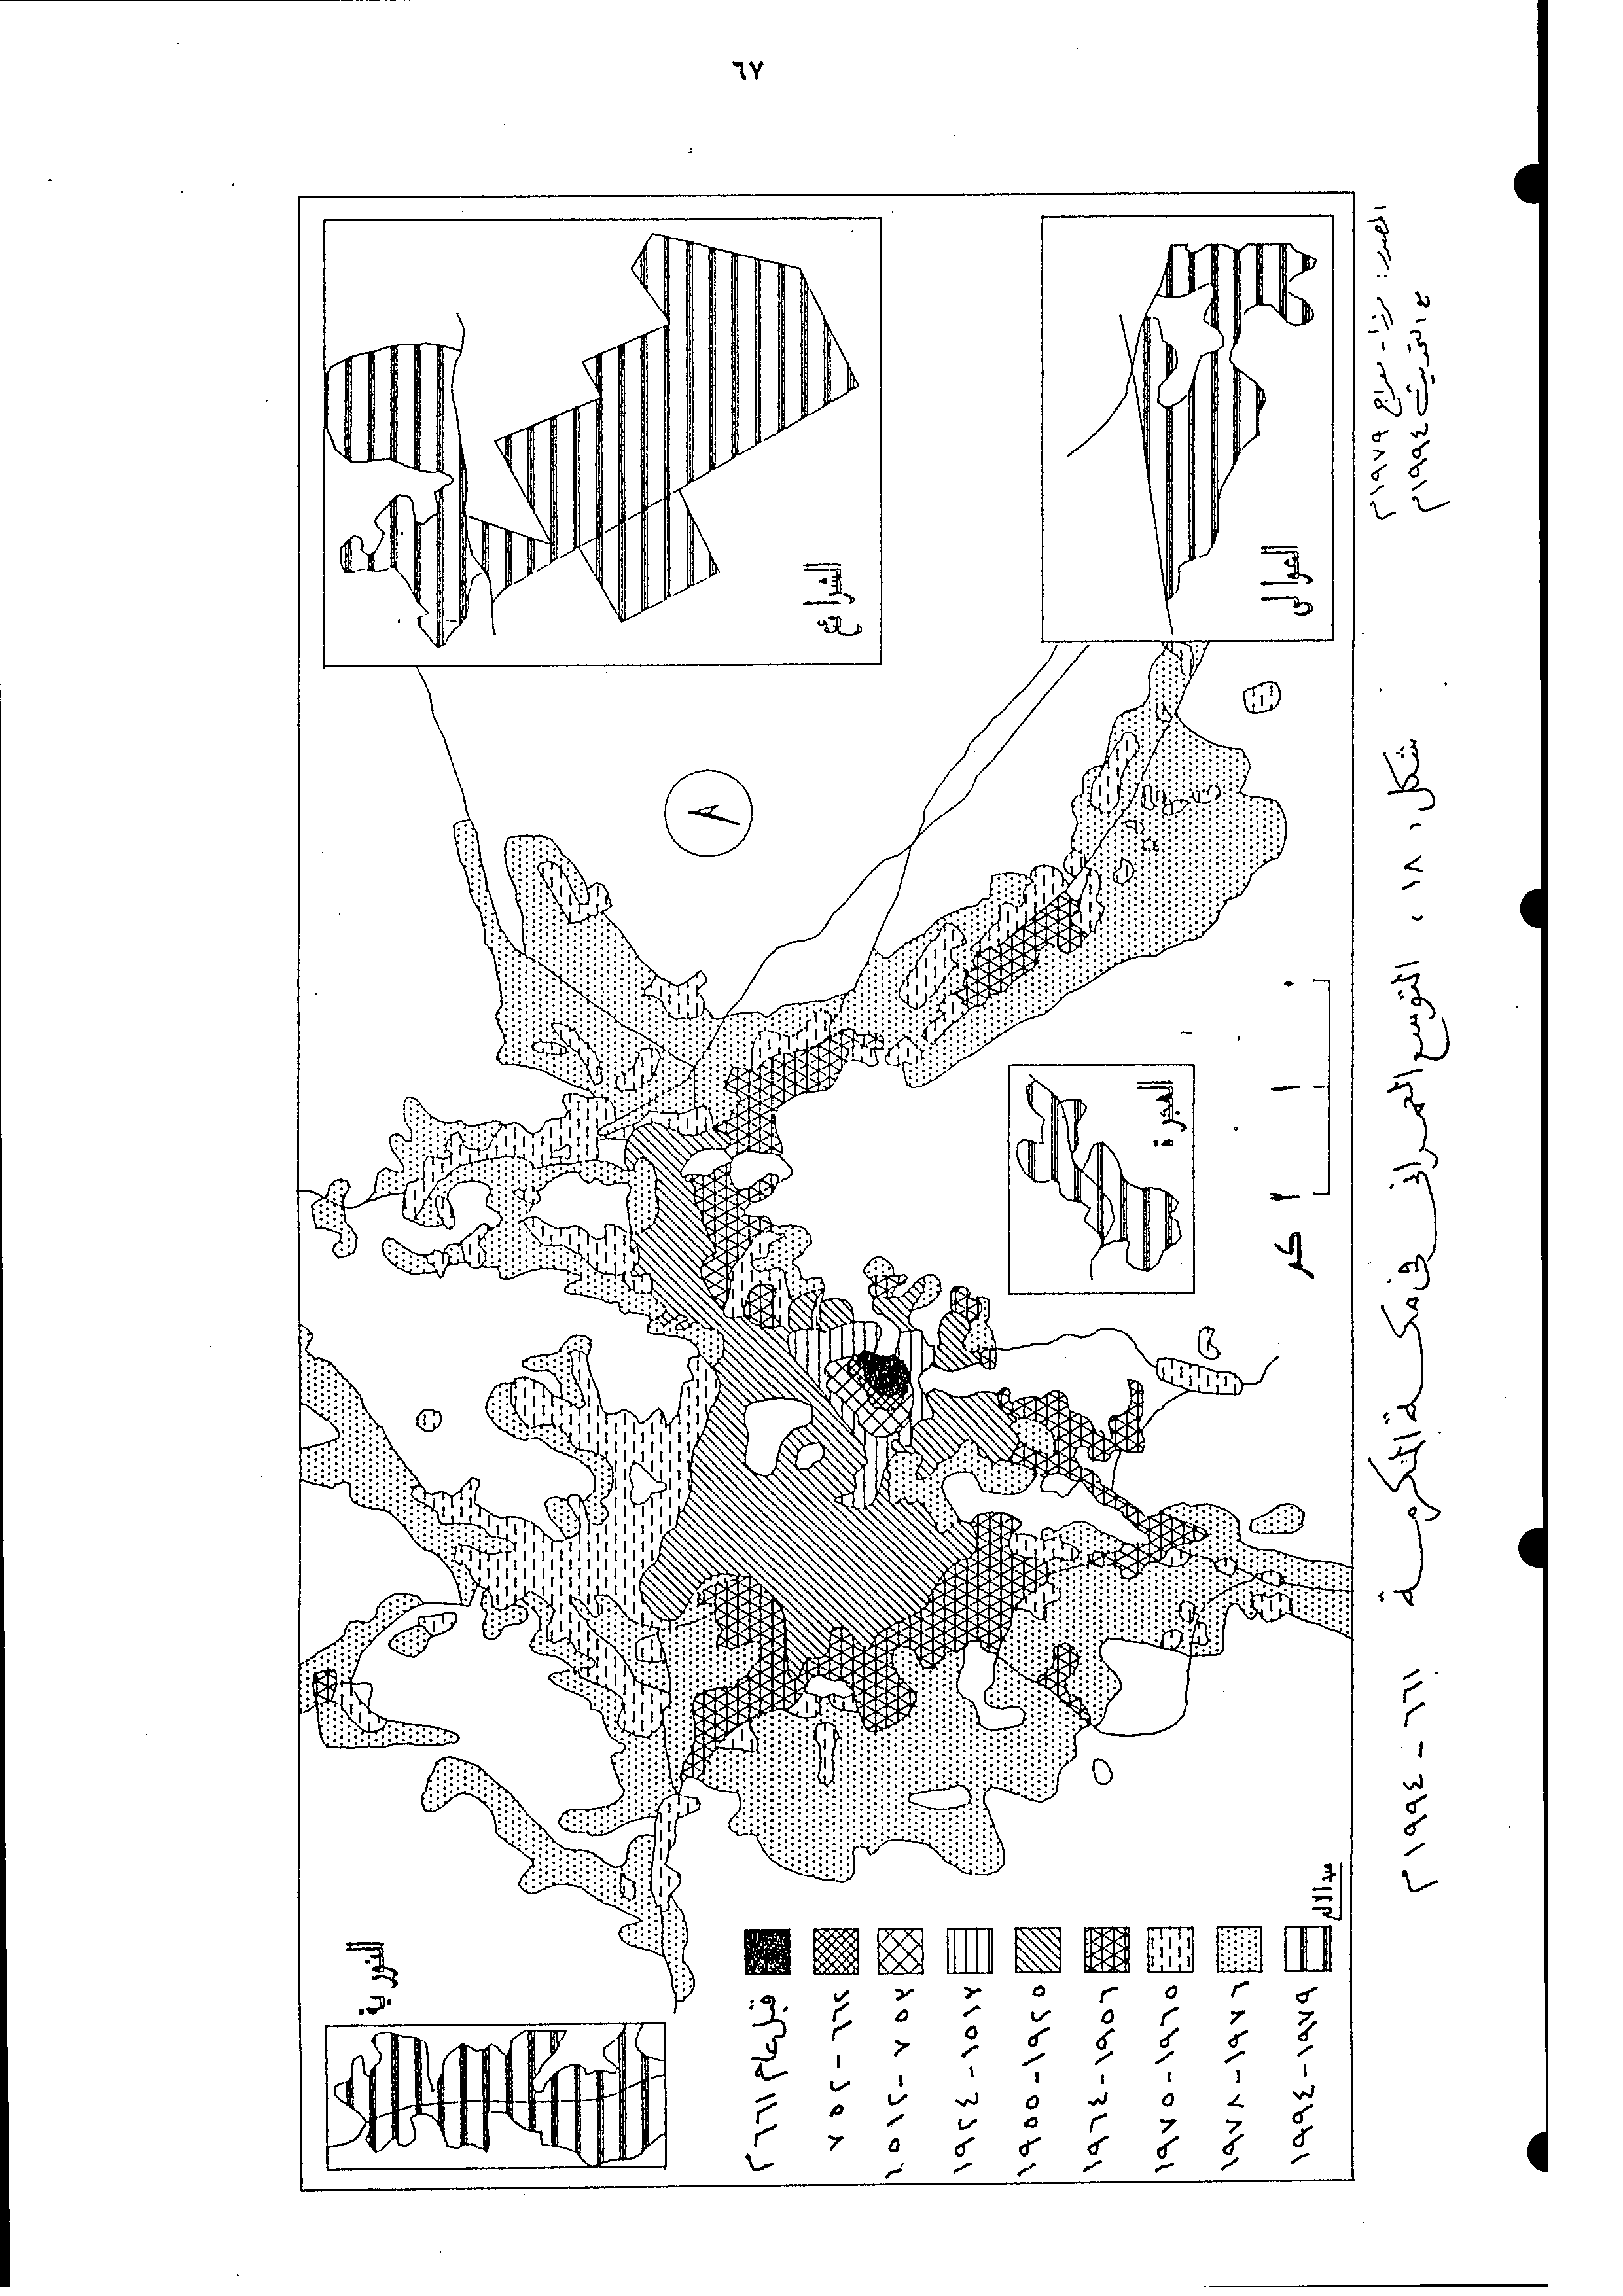 ٦٧
النورية
الشرائع
العوالي
قبل عام ٦٦١م
٦٦٢ - ٧٥٢
٧٥٣ - ١٥١٦
١٥١٧ - ١٩٢٤
١٩٢٥ - ١٩٥٥
١٩٥٦ - ١٩٦٤
١٩٦٥ - ١٩٧٥
١٩٧٦ - ١٩٧٨
١٩٧٩ - ١٩٩٤
كم ٢ ١ ٠
شكل ، ١٨ ، التوسع العمرانى فى مكة المكرمة ٦٦١ - ١٩٩٤م
المصدر : مرزا - معراج ١٩٧٩م
مع التحديث ١٩٩٤م